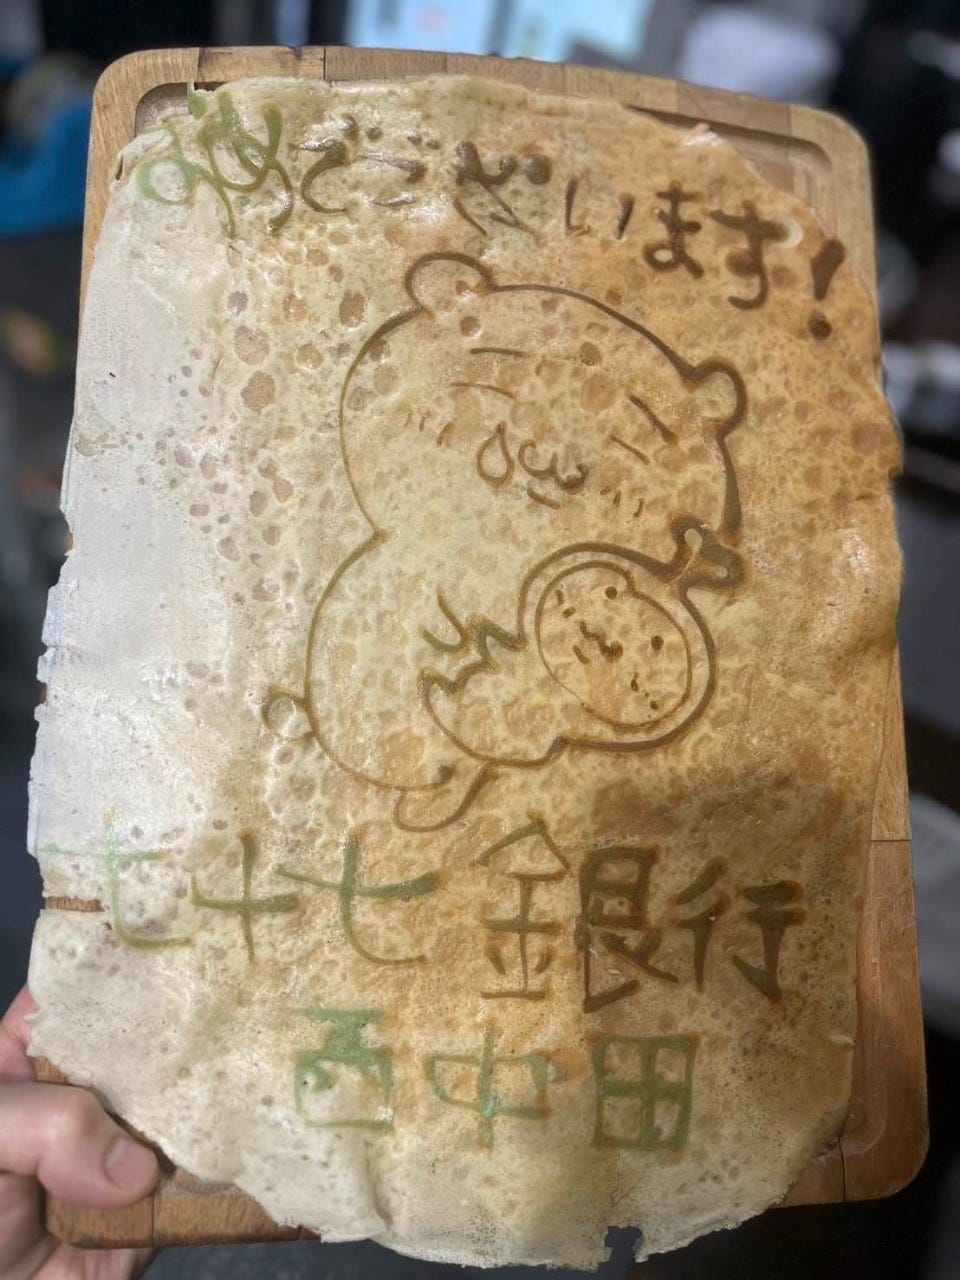 おめでございます!
七十七銀行
西中田